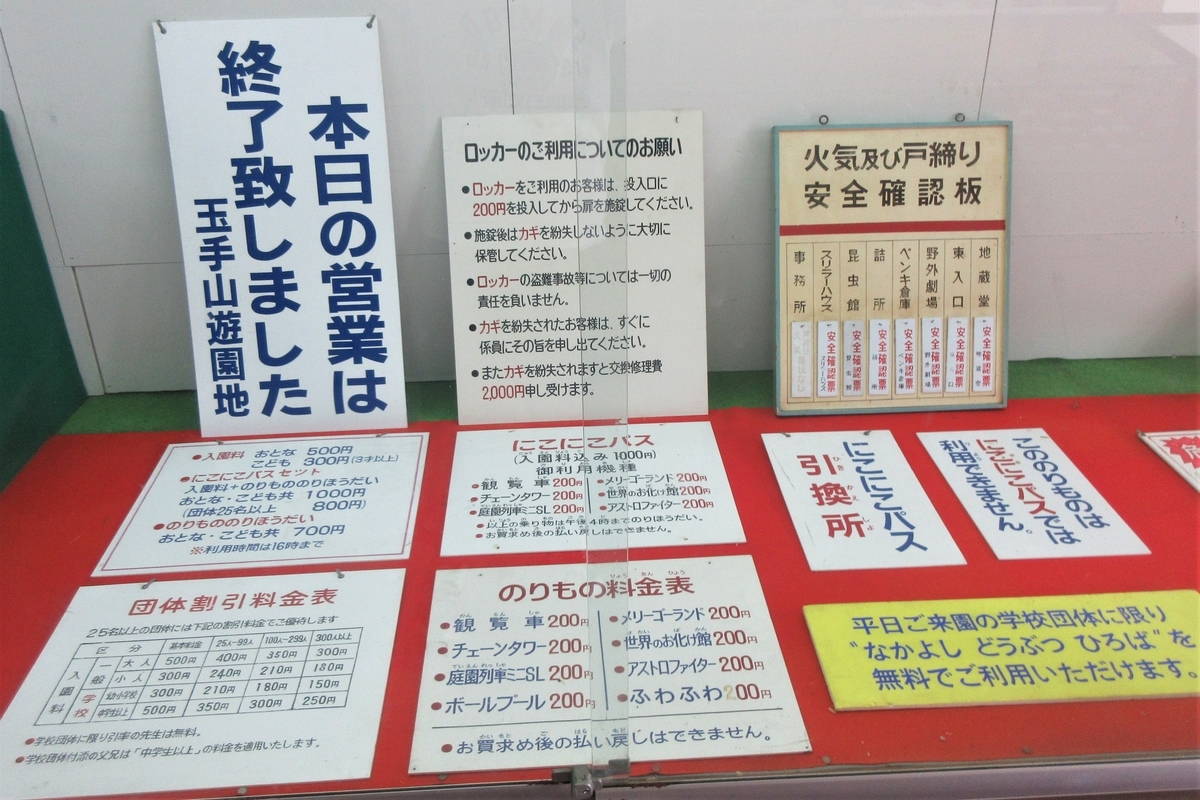 本日の営業は
終了致しました
玉手山遊園地
ロッカーのご利用についてのお願い
●ロッカーをご利用のお客様は、投入口に
200円を投入してから扉を施錠してください。
●施錠後はカギを紛失しないように大切に
保管してください。
●ロッカーの盗難事故等については一切の
責任を負いません。
●カギを紛失されたお客様は、すぐに
係員にその旨を申し出てください。
●またカギを紛失されますと交換修理費
2,000円申し受けます。
火気及び戸締り
安全確認板
地蔵堂
東入口
野外劇場
ペンキ倉庫
詰所
昆虫館
スリラーハウス
事務所
安全確認票
安全確認票
野外劇場
安全確認票
ペンキ倉庫
安全確認票
詰所
安全確認票
昆虫館
安全確認票
スリラーハウス
安全確認票
●入園料 おとな 500円
こども 300円(3才以上)
●にこにこパスセット
入園料+のりもののりほうだい
おとな・こども共 1000円
(団体25名以上 800円)
●のりもののりほうだい
おとな・こども共 700円
※利用時間は16時まで
にこにこパス
(入園料込み1000円)
御利用機種
●観覧車200円
●チェーンタワー200円
●庭園列車ミニSL 200円
●メリーゴーランド200円
●世界のお化け館200円
●アストロファイター200円
●以上の乗り物は午後4時までのりほうだい。
●お買求め後の払い戻しはできません。
にこにこパス
引換所
ひきかえしょ
このりものは
にこにこパスでは
利用できません。
団体割引料金表
25名以上の団体には下記の割引料金でご優待します
区分 基本料金 25人~99人 100人~299人 300人以上
入園料 一般 大人 500円 400円 350円 300円
小人 300円 240円 210円 180円
学校 幼小学校 300円 210円 180円 150円
中学生以上 500円 350円 300円 250円
●学校団体に限り引率の先生は無料。
●学校団体付添の父兄は「中学生以上」の料金を適用いたします。
のりもの料金表
●観覧車200円
●チェーンタワー200円
●庭園列車ミニSL 200円
●ボールプール 200円
●メリーゴーランド200円
●世界のお化け館200円
●アストロファイター200円
●ふわふわ200円
●お買求め後の払い戻しはできません。
平日ご来園の学校団体に限り
"なかよし どうぶつ ひろば"を
無料でご利用いただけます。